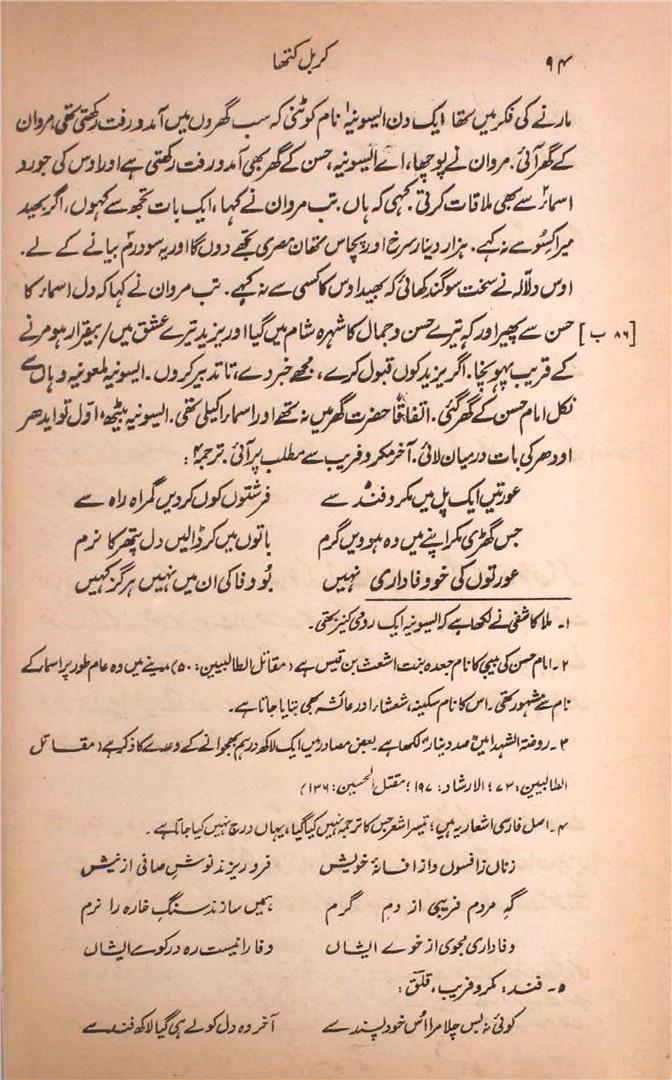 ۹۴ کربل کتھا
مارنے کی فکر میں تھا ایک دن الیسونیہ۱ نام کوٹنی کہ سب گھروں میں آمد و رفت رکھتی تھی، مروان
کے گھر آئی۔ مروان نے پوچھا، اے الیسونیہ، حسن کے گھر بھی آمد و رفت رکھتی ہے اور اوس کی جورو
اسما۲ سے بھی ملاقات کرتی۔ کہی کہ ہاں۔ تب مروان نے کہا، ایک بات تجھ سے کہوں، اگر بھید
میرا کسُو سے نہ کہے۔ ہزار دینار سرخ اور پچاس تھان مصری تجھے دوں گا اور یہ سو درم۳ بیانے کے لے۔
اوس دلّالہ نے سخت سوگند کھائی کہ بھید اوس کا کسی سے نہ کہے۔ تب مروان نے کہا کہ دل اسما کا
[۸۶ ب] حسن سے پھیر اور کہہ تیرے حسن و جمال کا شہرہ شام میں گیا اور یزید تیرے عشق میں/ بیقرار ہو مرنے
کے قریب پہونچا۔ اگر یزید کوں قبول کرے، مجھے خبر دے، تا تدبیر کروں۔ الیسونیہ ملعونیہ وہاں سے
نکل امام حسن کے گھر گئی۔ اتفاقاً حضرت گھر میں نہ تھے اور اسما اکیلی تھی۔ الیسونیہ بیٹھ، اوّل تو ایدھر
اودھر کی بات درمیان لائی۔ آخر مکر و فریب سے مطلب پر آئی۔ ترجمہ۴:
عورتیں ایک پل میں مکر و فند۵ سے فرشتوں کوں کر دیں گمراہ راہ سے
جس گھڑی مکر اپنے میں وہ ہوویں گرم باتوں میں کر ڈالیں دل پتھر کا نرم
عورتوں کی خو وفاداری نہیں بُو وفا کی ان میں نہیں ہرگز کہیں
۱۔ ملا کاشفی نے لکھا ہے کہ السونیہ ایک رومی کنیز تھی۔
۲۔ امام حسن کی بیبی کا نام جعدہ بنت اشعث بن قیس ہے (مقاتل الطالبیین: ۵۰) مدینے میں وہ عام طور پر اسما کے
نام سے مشہور تھی۔ اس کا نام سکینہ، شعشاء اور عائشہ بھی بتایا جاتا ہے۔
۳۔ روضۃ الشہدا میں "صد دینار" لکھا ہے بعض مصادر میں ایک لاکھ درہم بھجوانے کے وعدے کا ذکر ہے (مقاتل
الطالبیین: ۷۳؛ الارشاد: ۱۹۷؛ مقتل الحسین: ۱۳۶)
۴۔ اصل فارسی اشعار یہ ہیں؛ تیسرا شعر جس کا ترجمہ نہیں کیا گیا، یہاں درج نہیں کیا جاتا ہے۔
زناں ز افسوں و از افسانۂ خویش فرو ریزند نوش صافی از نیش
گہِ مردم فریبی از دمِ گرم ہمیں سازند سنگِ خارہ را نرم
وفاداری مجوی از خوے ایشاں وفا را نیست رہ در کوے ایشاں
۵۔ فند: مکر و فریب، قلق:
کوئی نہ بس چلا مرا اُس خود پسند سے آخر وہ دل کو لے ہی گیا لاکھ فند سے